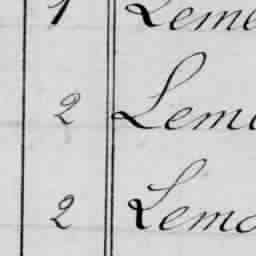 1 Leme
2 Leme
2 Lemo